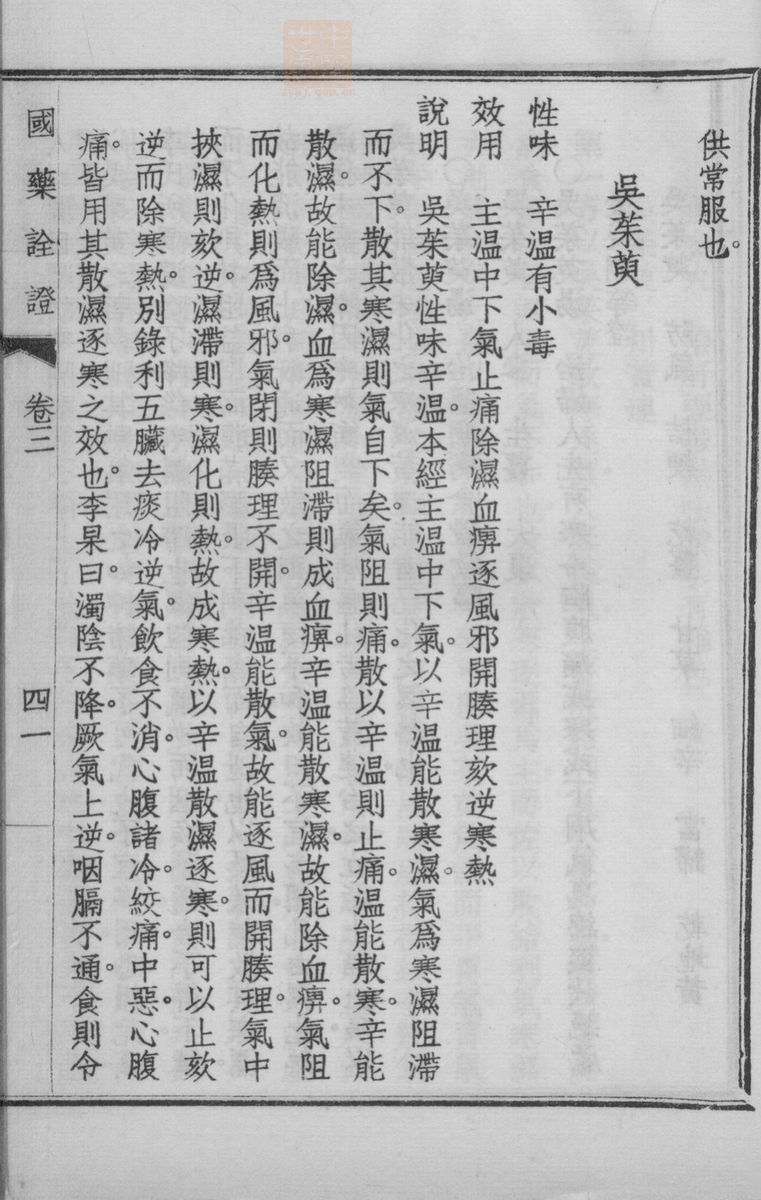 供常服也。
吳茱萸
性味　辛溫有小毒
效用　主溫中下氣止痛除濕血痹逐風邪開腠理欬逆寒熱
說明　吳茱萸性味辛溫。本經主溫中下氣。以辛溫能散寒濕。氣爲寒濕阻滯
而不下。散其寒濕則氣自下矣。氣阻則痛。散以辛溫則止痛。溫能散寒。辛能
散濕。故能除濕。血爲寒濕阻滯則成血痹。辛溫能散寒濕。故能除血痹。氣阻
而化熱則爲風邪。氣閉則腠理不開。辛溫能散氣。故能逐風而開腠理。氣中
挾濕則欬逆。濕滯則寒。濕化則熱。故成寒熱。以辛溫散濕逐寒。則可以止欬
逆而除寒熱。別錄利五臟去痰冷逆氣。飲食不消。心腹諸冷。絞痛。中惡。心腹
痛。皆用其散濕逐寒之效也。李杲曰。濁陰不降。厥氣上逆。咽膈不通。食則令
國藥詮證　卷三　四一